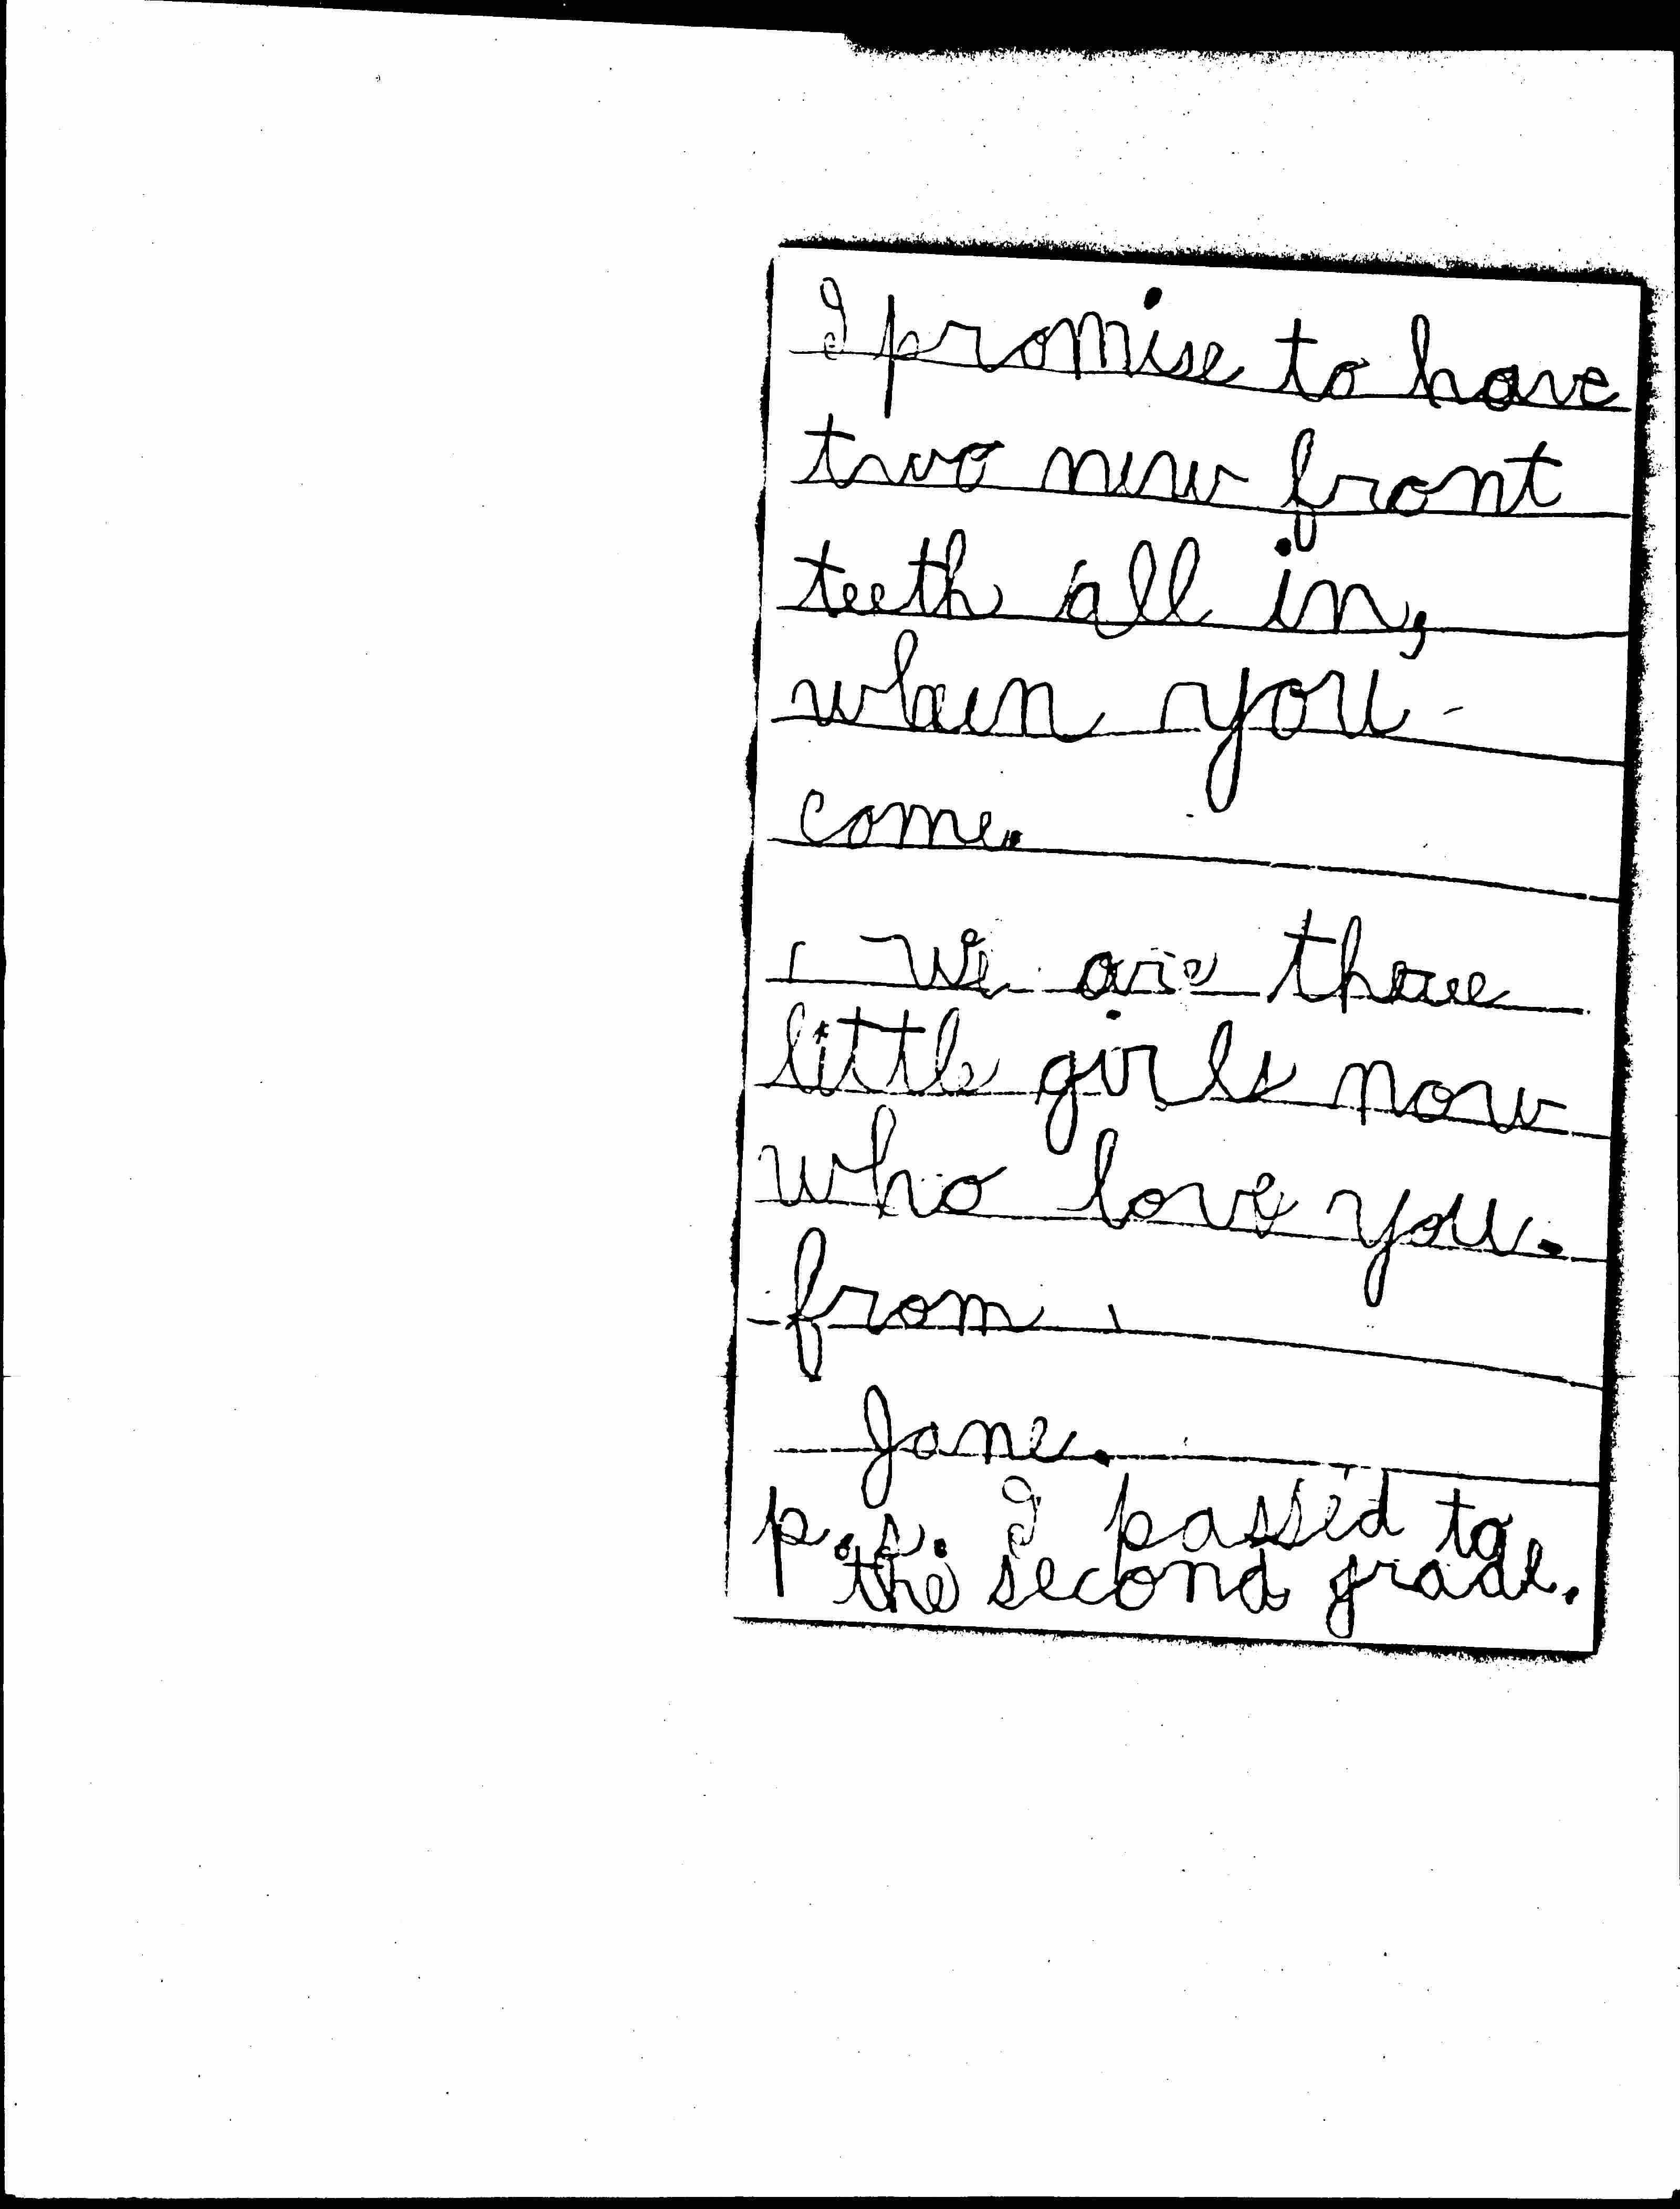 I promise to have
two new front
teeth all in,
when you
come.
We are three
little girls now
who love you.
from
Jane.
p.s. I passed to
the second grade.